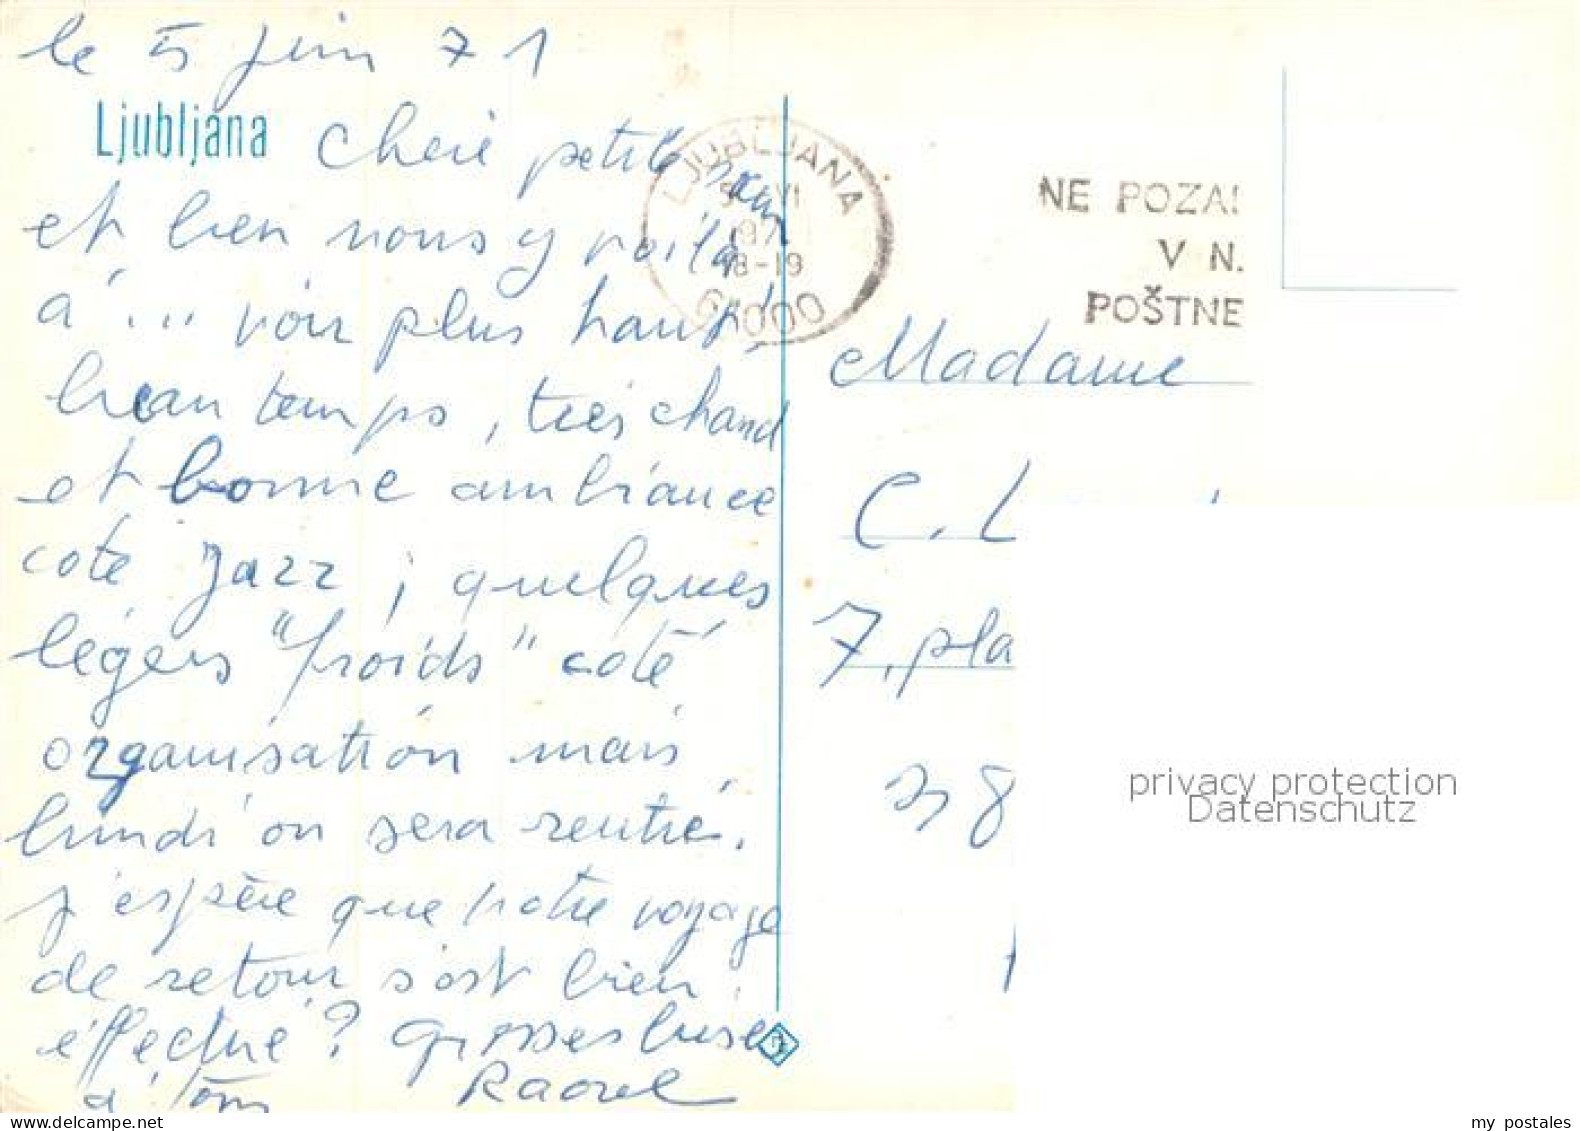 le 5 juin 71
Ljubljana
Chère petite sœur
et bien nous y voilà
à ... voir plus haut,
beau temps, très chaud
et bonne ambiance
coté Jazz ; quelques
légers "froids" coté
organisation mais
lundi on sera rentré.
J'espère que votre voyage
de retour s'est bien
effectué ? Grosses bises
à tous
Raoul
LJUBLJANA
5. VI
197
18-19
61000
NE POZA!
V N.
POŠTNE
Madame
C. L
7, pla
38
privacy protection
Datenschutz
my postales